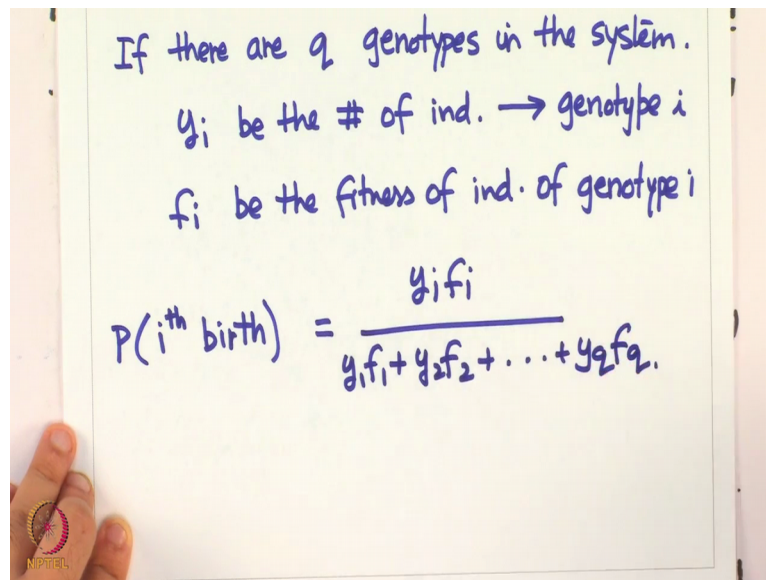 If there are q genotypes in the system.
yi be the # of ind. → genotype i
fi be the fitness of ind. of genotype i
P(ith birth) = yifi / y1f1 + y2f2 + ... + yqfq.
NPTEL